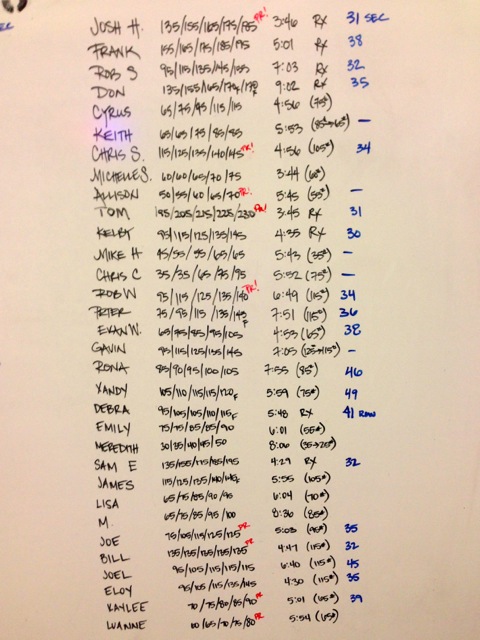 JOSH H. 135/155/165/175/185 PR! 3:46 RX 31 SEC
FRANK 155/165/175/185/195 5:01 RX 38
ROB S 95/115/135/145/155 7:03 RX 32
DON 135/155/165/175/175F 9:02 RX 35
CYRUS 65/75/95/115/115 4:56 (75#)
KEITH 65/65/75/85/85 5:53 (85#→65#) —
CHRIS S. 115/125/135/140/145 PR! 4:56 (105#) 34
MICHELLE S. 60/60/65/70/75 3:44 (65#)
ALLISON 50/55/60/65/70 PR! 5:45 (55#) —
TOM 195/205/215/225/230 PR! 3:45 RX 31
KELBY 95/115/125/135/145 4:35 RX 30
MIKE H 45/55/55/65/65 5:43 (35#) —
CHRIS C 35/35/65/75/95 5:52 (75#) —
ROB W 95/115/125/135/140 PR! 6:49 (115#) 34
PETER 75/95/115/135/145F 7:51 (115#) 36
EVAN W. 65/75/85/95/105 4:53 (65#) 38
GAVIN 95/115/125/135/145 7:05 (125→115#) —
RONA 85/90/95/100/105 7:55 (85#) 46
XANDY 105/110/115/115/120F 5:59 (75#) 49
DEBRA 95/105/105/110/115F 5:48 RX 41 ROW
EMILY 75/75/85/85/90 6:01 (55#)
MEREDITH 30/35/40/45/50 8:06 (35→25#)
SAM E 135/155/175/185/195 4:29 RX 32
JAMES 115/125/135/140/145F 5:55 (105#)
LISA 65/75/85/90/95 6:04 (70#)
M. 65/75/85/95/100 8:36 (85#)
JOE 75/105/115/125/125 PR 5:03 (95#) 35
BILL 135/135/135/135/135 PR 4:47 (115#) 32
JOEL 95/105/115/115/115 6:40 (115#) 45
ELOY 95/105/115/135/145 4:30 (115#) 35
KAYLEE 70/75/80/85/90 PR 5:01 (65#) 39
LUANNE 60/65/70/75/80 PR 5:54 (65#)